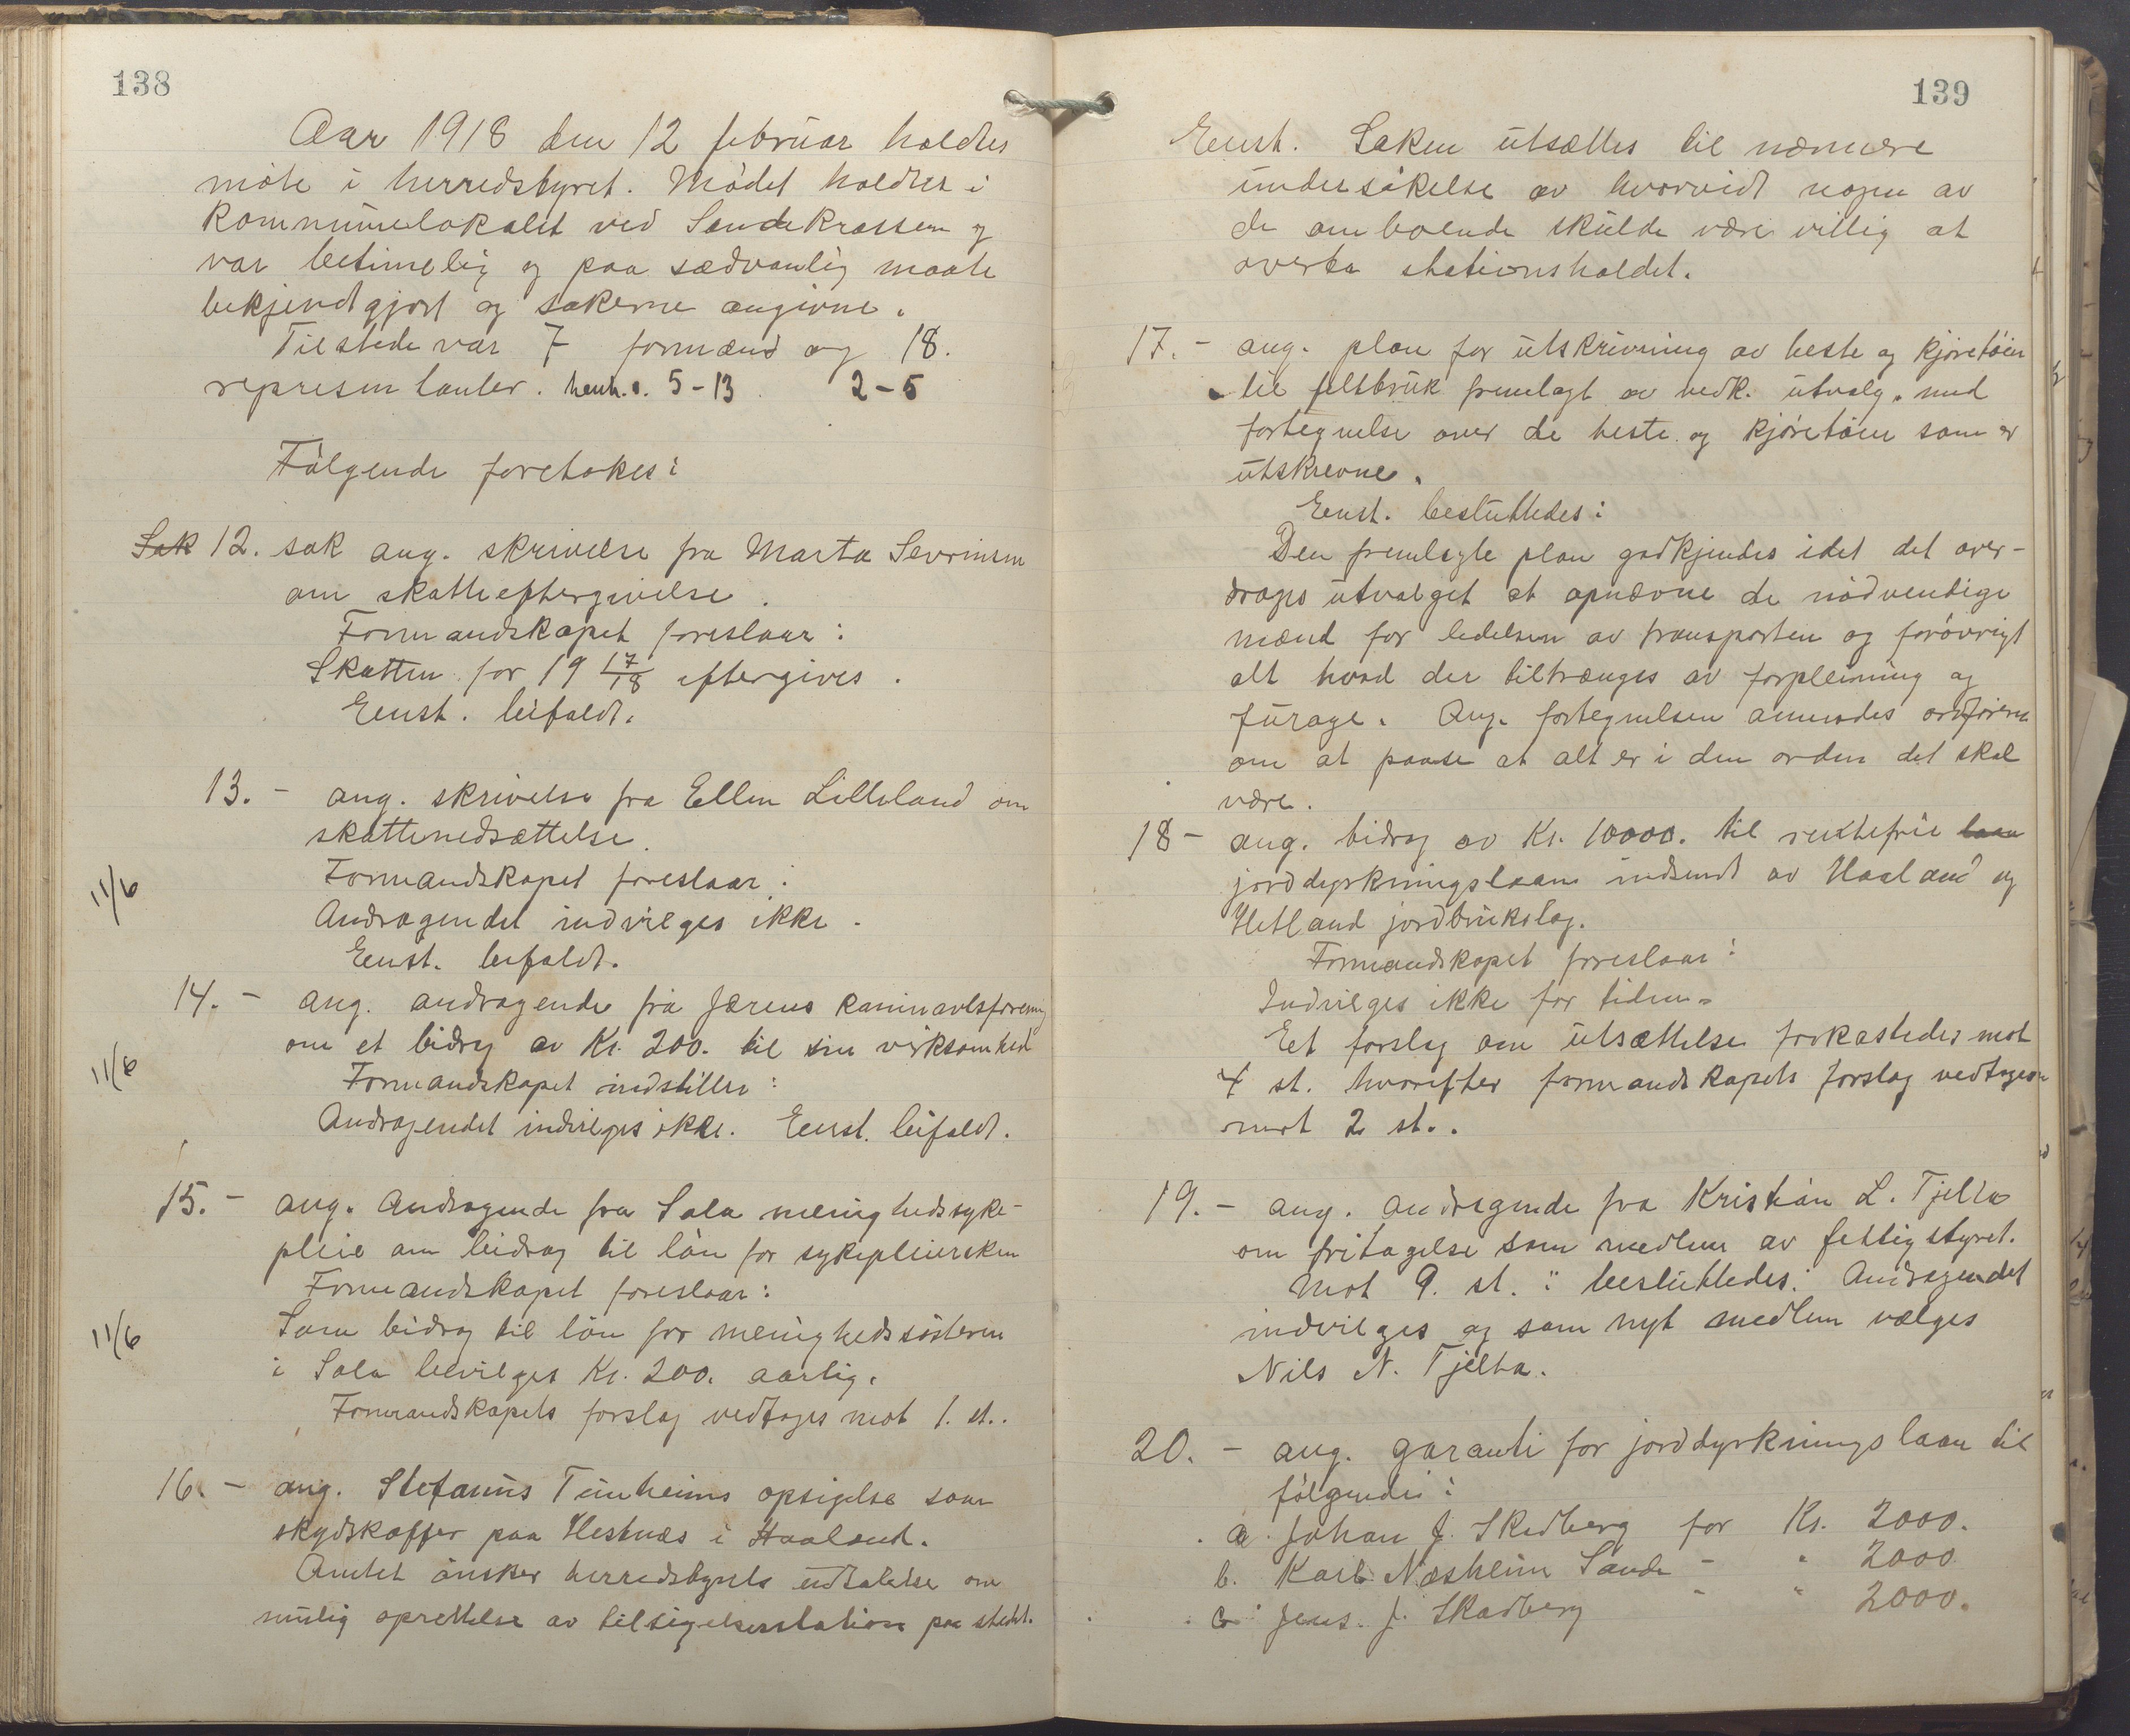 138
Aar 1918 den 12 februar holdtes
møte i herredstyret. Mødet holdtes i
kommunelokalet ved Sandekrossen og
var betimelig og paa sædvanlig maate
bekjendtgjort og sakerne angivne.
Tilstede var 7 formænd og 18.
representanter. henh. 5-13. 2-5
Følgende foretokes:
Sak 12. sak ang. skrivelse fra Marta Sevrinsen
om skatteeftergivelse.
Formandskapet foreslaar:
Skatten for 19 17/18 eftergives.
Enst. bifaldt.
13. - ang. skrivelse fra Ellen Lilleland om
skattenedsættelse.
Formandskapet foreslaar:
11/6
Andragendet indvilges ikke.
Enst. bifaldt.
14. - ang. andragende fra Jærens kaninavlsforening
om et bidrag av Kr. 200. til sin virksomhed
11/6
Formandskapet indstiller:
Andragendet indvilges ikke. Enst. bifaldt.
15. - ang. Andragende fra Sola menighedssyke-
pleie om bidrag til løn for sykepleiersken
Formandskapet foreslaar:
11/6
Som bidrag til løn for menighedssøsteren
i Sola bevilges Kr. 200. aarlig.
Formandskapets forslag vedtoges mot 1. st..
16. - ang. Stefanus Tunheims opsigelse som
skydskaffer paa Hestnæs i Haaland.
Amtet ønsker herredstyrets udtalelse om
mulig oprettelse av tilsigelsesstation paa stedet.
139
Enst. Saken utsættes til nærmere
undersøkelse av hvorvidt nogen av
de omboende skulde være villig at
overta stationsholdet.
17. - ang. plan for utskrivning av heste og kjøretøier
til feltbruk fremlagt av vedk. utvalg. med
fortegnelse over de heste og kjøretøier som er
utskrevne.
Enst. besluttedes:
Den fremlagte plan godkjendes idet det over-
drages utvalget at opnævne de nødvendige
mænd for ledelsen av transporten og forøvrigt
alt hvad der tiltrænges av forpleining og
furage. Ang. fortegnelsen anmodes ordføreren
om at paase at alt er i den orden det skal
være.
18 - ang. bidrag av Kr. 10000. til rentefrie laan
jorddyrkningslaan indsendt av Haaland og
Hetland jordbrukslag.
Formandskapet foreslaar:
Indvilges ikke for tiden.
Eet forslag om utsættelse forkastedes mot
4 st. hvorefter formandskapets forslag vedtoges
mot 2 st..
19. - ang. andragende fra Kristian L. Tjelta
om fritagelse som medlem av fattigstyret.
Mot 9. st. besluttedes: Andragendet
indvilges og som nyt medlem vælges
Nils N. Tjelta.
20. - ang. garanti for jorddyrkningslaan til
følgende:
a. Johan J. Skadberg for Kr. 2000.
b. Karl Næsheim Sande - " 2000
c. Jens. J. Skadberg - " 2000.